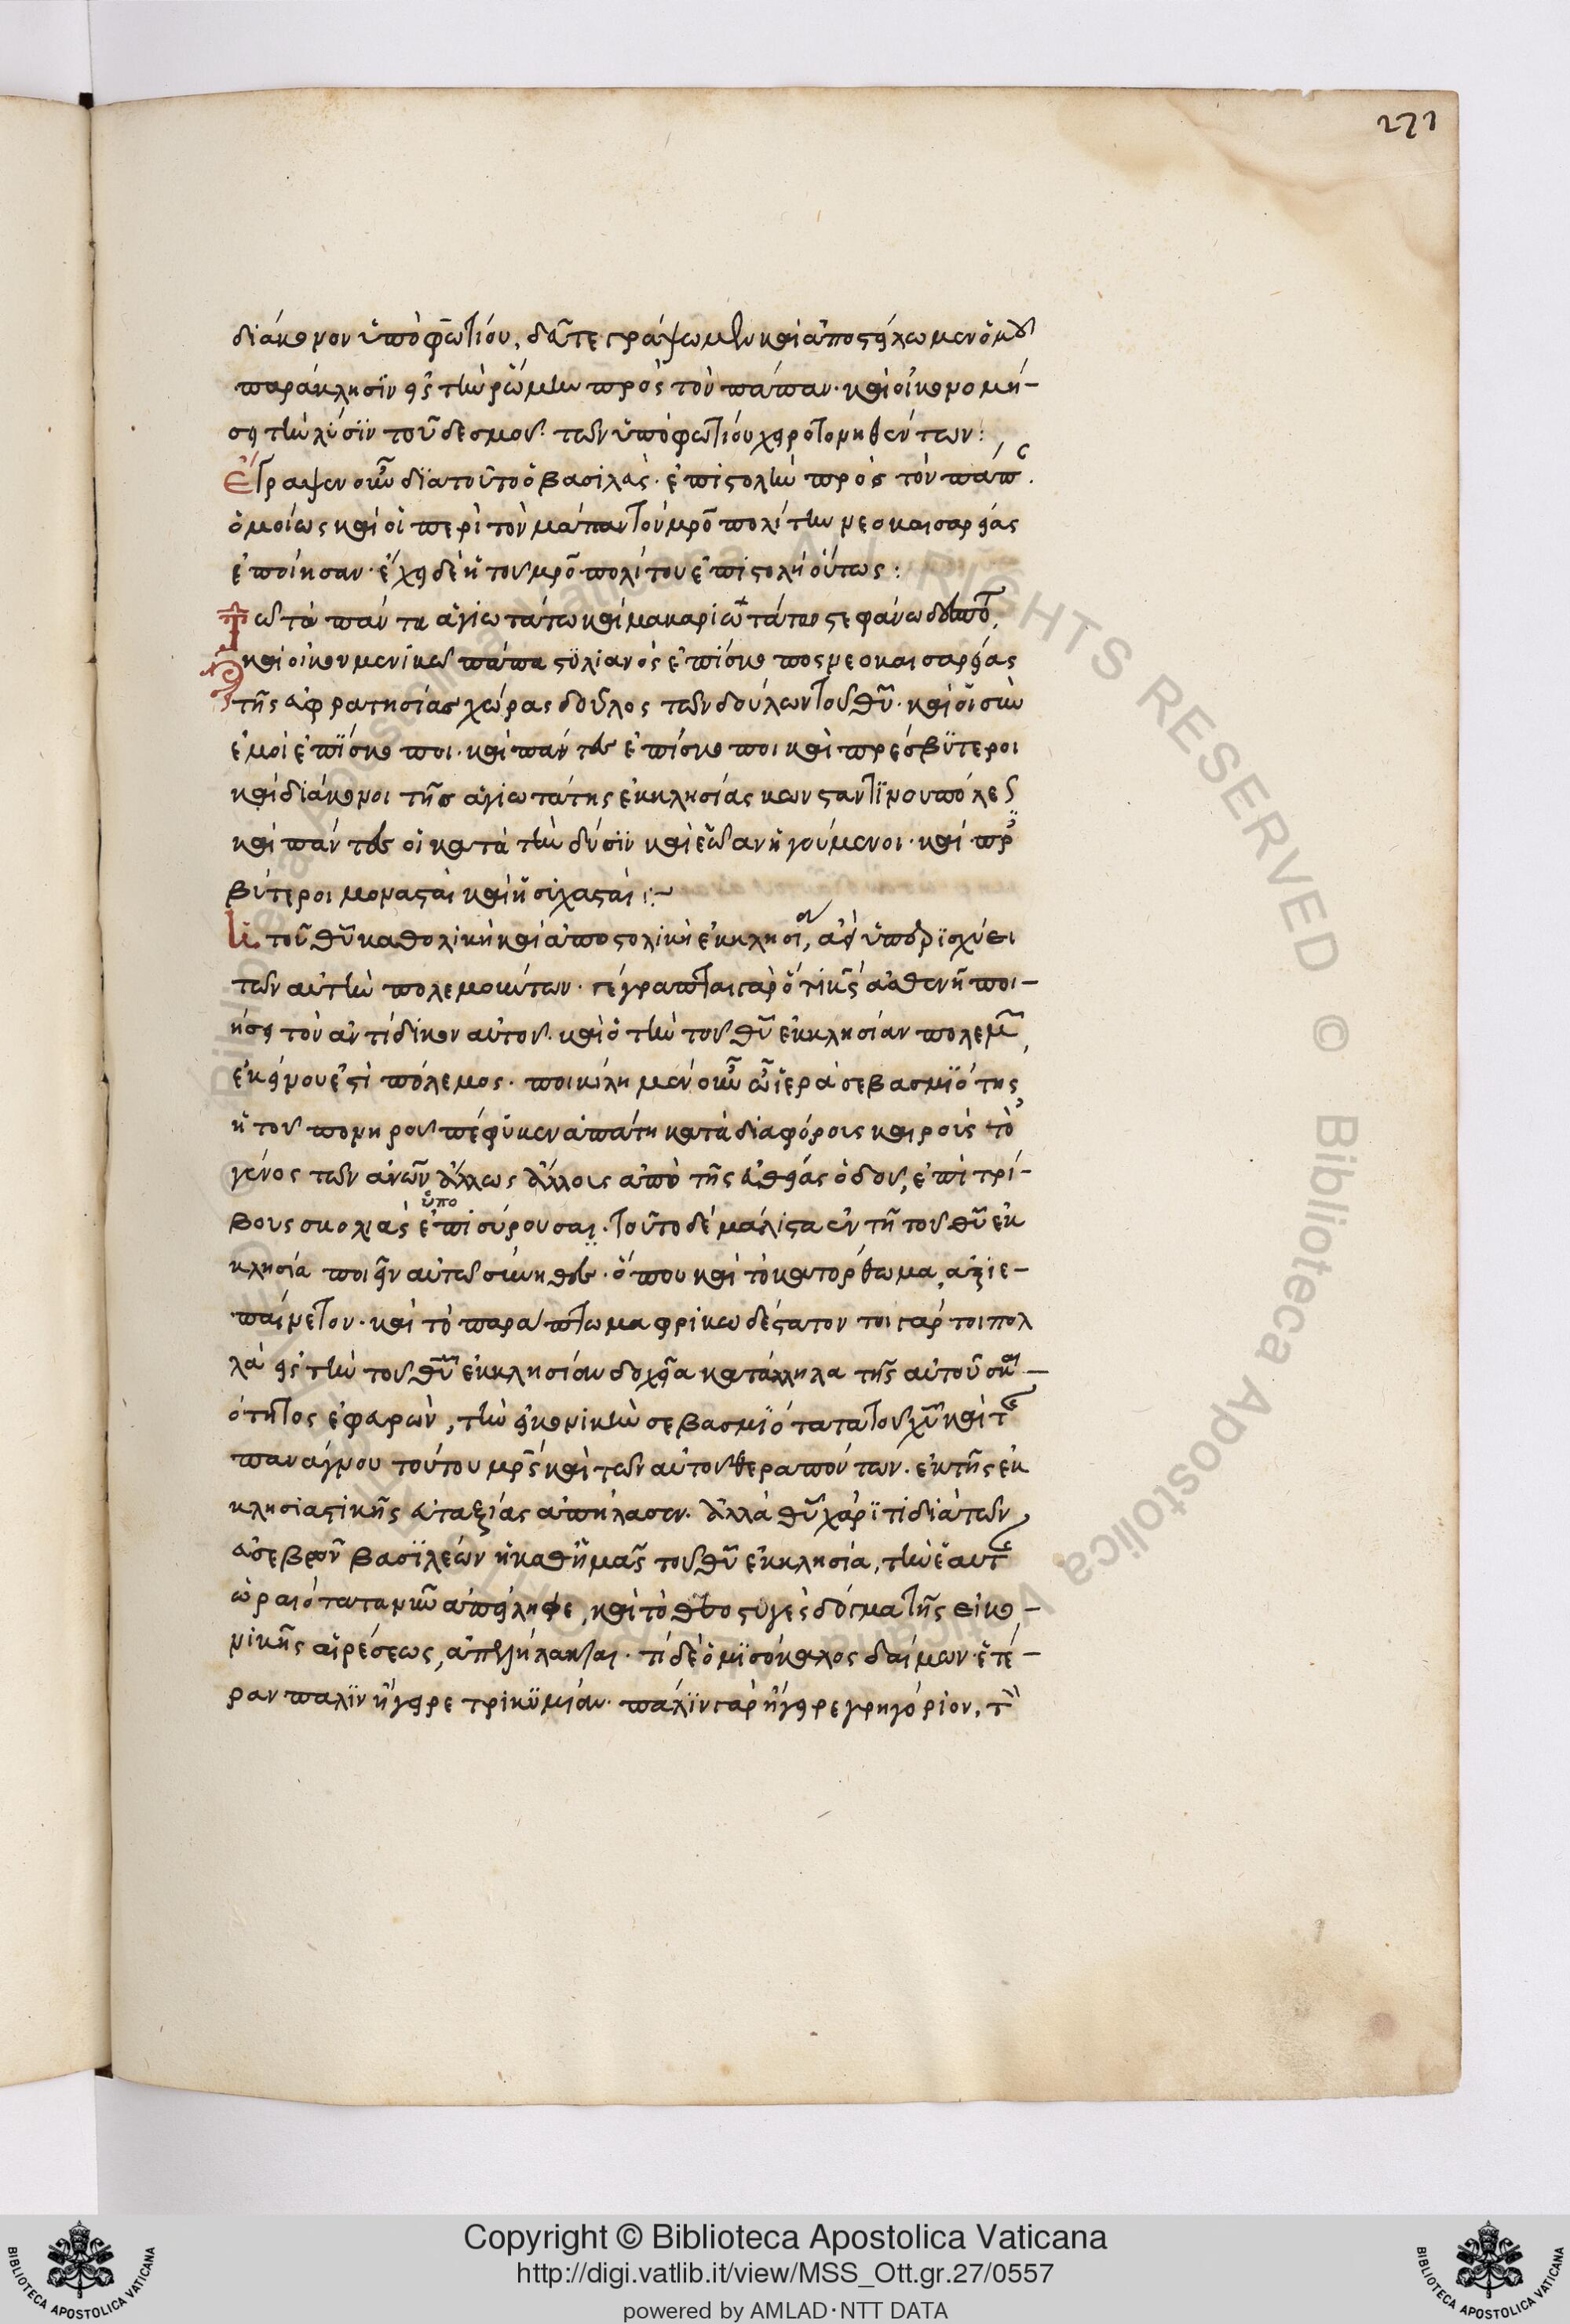 271
διάκονον ὑπὸ φωτίου, δεῦτε γράψωμεν καὶ ἀποστείλωμεν ὁμοῦ
παράκλησιν εἰς τὴν ῥώμην πρὸς τὸν πάπαν· καὶ οἰκονομή-
σει τὴν λύσιν τοῦ δεσμοῦ τῶν ὑπὸ φωτίου χειροτονηθέντων:
Ἔγραψεν οὖν διατοῦτο ὁ βασιλεὺς ἐπιστολὴν πρὸς τὸν πάπ.
ὁμοίως καὶ οἱ περὶ τὸν μάπαντον μρο πολίτην νεοκαισαρείας
ἐποίησαν· ἔχει δὲ ἡ τοῦ μρο πολίτου ἐπιστολὴ οὕτως:
Τῶ τὰ πάντα ἁγιωτάτω καὶ μακαριωτάτω στεφάνω
καὶ οἰκουμενικῶ πάπα στυλιανὸς ἐπίσκοπος νεοκαισαρείας
τῆς εὐφρατησίας χώρας δοῦλος τῶν δούλων τοῦ θυ· καὶ οἱ σὺν
ἐμοὶ ἐπίσκοποι· καὶ πάντες ἐπίσκοποι καὶ πρεσβύτεροι
καὶ διάκονοι τῆς ἁγιωτάτης ἐκκλησίας κωνσταντινουπόλε
καὶ πάντες οἱ κατὰ τὴν δύσιν καὶ ἕωαν ἡγούμενοι· καὶ πρ
βύτεροι μονασταὶ καὶ ἡσυχασταί:~
Ἡ τοῦ θυ καθολικὴ καὶ ἀποστολικὴ ἐκκλησι, ἀεὶ ὑπερισχύει
τῶν αὐτὴν πολεμούντων· γέγραπται γὰρ ὅτι κς ἀσθενῆ ποι-
ήσει τὸν ἀντίδικον αὐτοῦ· καὶ ὁ τὴν τοῦ θυ ἐκκλησίαν πολεμ
ἐκείνου ἐστὶ πόλεμος· ποικίλη μὲν οὖν ὦ ἱερὰ σεβασμιότης
ἡ τοῦ πονηροῦ πέφυκεν ἀπάτη κατὰ διαφόρους καιροὺς τὸ
γένος τῶν ανων ἄλλως ἄλλοις ἀπὸ τῆς εὐθείας ὁδοῦ, ἐπὶ τρί-
ὑπο
βους σκολιὰς ἐπισύρουσα· τοῦτο δὲ μάλιστα ἐν τῆ τοῦ θυ ἐκ
κλησία ποιεῖν αὐτῶ σύνηθες· ὅπου καὶ τὸ κατόρθωμα, ἀξιε-
παίνετον· καὶ τὸ παράπτωμα φρικωδέστατον τοιγάρτοι πολ
λὰ εἰς τὴν τοῦ θυ ἐκκλησίαν δοχεῖα κατάλληλα τῆς αὐτοῦ σκαι-
ότητος ἐφευρών, τὴν εἰκονικὴν σεβασμιότητα τοῦ χυ καὶ τ
παναγνου τούτου μρς καὶ τῶν αὐτοῦ θεραπόντων· ἐκ τῆς ἐκ
κλησιαστικῆς εὐταξίας ἀπήλασεν· ἀλλὰ θυ χάριτι διὰ τῶν
εὐσεβῶν βασιλέων ἡ καθ ἡμᾶς τοῦ θυ ἐκκλησία, τὴν ἑαυτ
ὡραιότητα νῦν ἀπείληφε, καὶ τὸ θεοστυγὲς δόγμα τῆς εἰκο-
νικῆς αἱρέσεως, ἀπελήλακται· τί δὲ ὁ μισόκαλος δαίμων· ἑτέ-
ραν πάλιν ἤγειρε τρικυμίαν· πάλιν γὰρ ἤγειρε γρηγόριον, τ
Copyright © Biblioteca Apostolica Vaticana
http://digi.vatlib.it/view/MSS_Ott.gr.27/0557
powered by AMLAD·NTT DATA